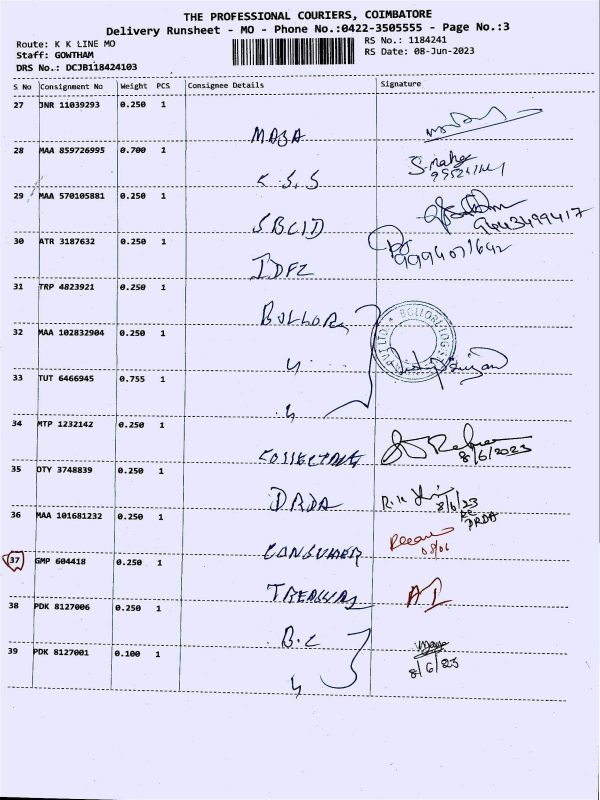 THE PROFESSIONAL COURIERS, COIMBATORE
Delivery Runsheet - MO - Phone No.:0422-3505555 - Page No.:3
Route: K K LINE MO
RS No.: 1184241
Staff: GOWTHAM
RS Date: 08-Jun-2023
DRS No.: DCJB118424103
S No Consignment No Weight PCS Consignee Details Signature
27 JNR 11039293 0.250 1
28 MAA 859726995 0.700 1
K.S.S
29 MAA 570105881 0.250 1
SBCID 9443499417
30 ATR 3187632 0.250 1
9994071642
31 TRP 4823921 0.250 1
BOLLORE
32 MAA 102832904 0.250 1
33 TUT 6466945 0.755 1
34 MTP 1232142 0.250 1
8/6/2023
35 OTY 3748839 0.250 1
DRDA 8/6/23
DRDA
36 MAA 101681232 0.250 1
CONSUMER 08/06
37 GMP 604418 0.250 1
38 PDK 8127006 0.250 1
B.C
39 PDK 8127001 0.100 1
8/6/23